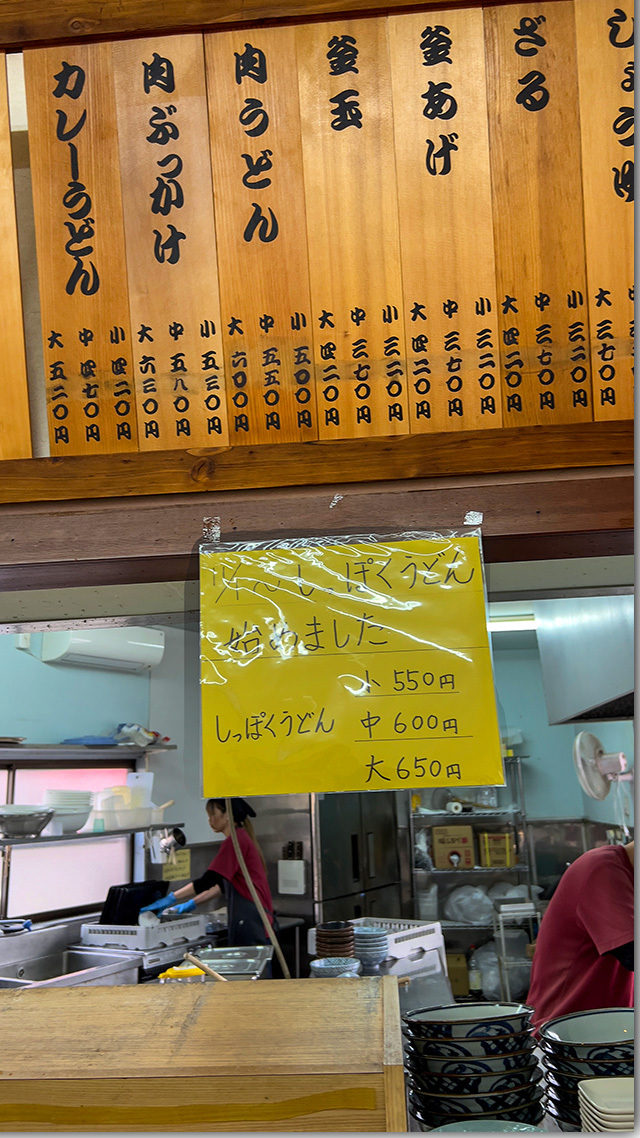 しょうゆ
大 三七〇円
ざる
小 三二〇円
中 三七〇円
大 四二〇円
釜あげ
小 三二〇円
中 三七〇円
大 四二〇円
釜玉
小 三二〇円
中 三七〇円
大 四二〇円
肉うどん
小 五〇〇円
中 五五〇円
大 六〇〇円
肉ぶっかけ
小 五三〇円
中 五八〇円
大 六三〇円
カレーうどん
小 四二〇円
中 四七〇円
大 五二〇円
しっぽくうどん
始めました
小 550円
しっぽくうどん 中 600円
大 650円